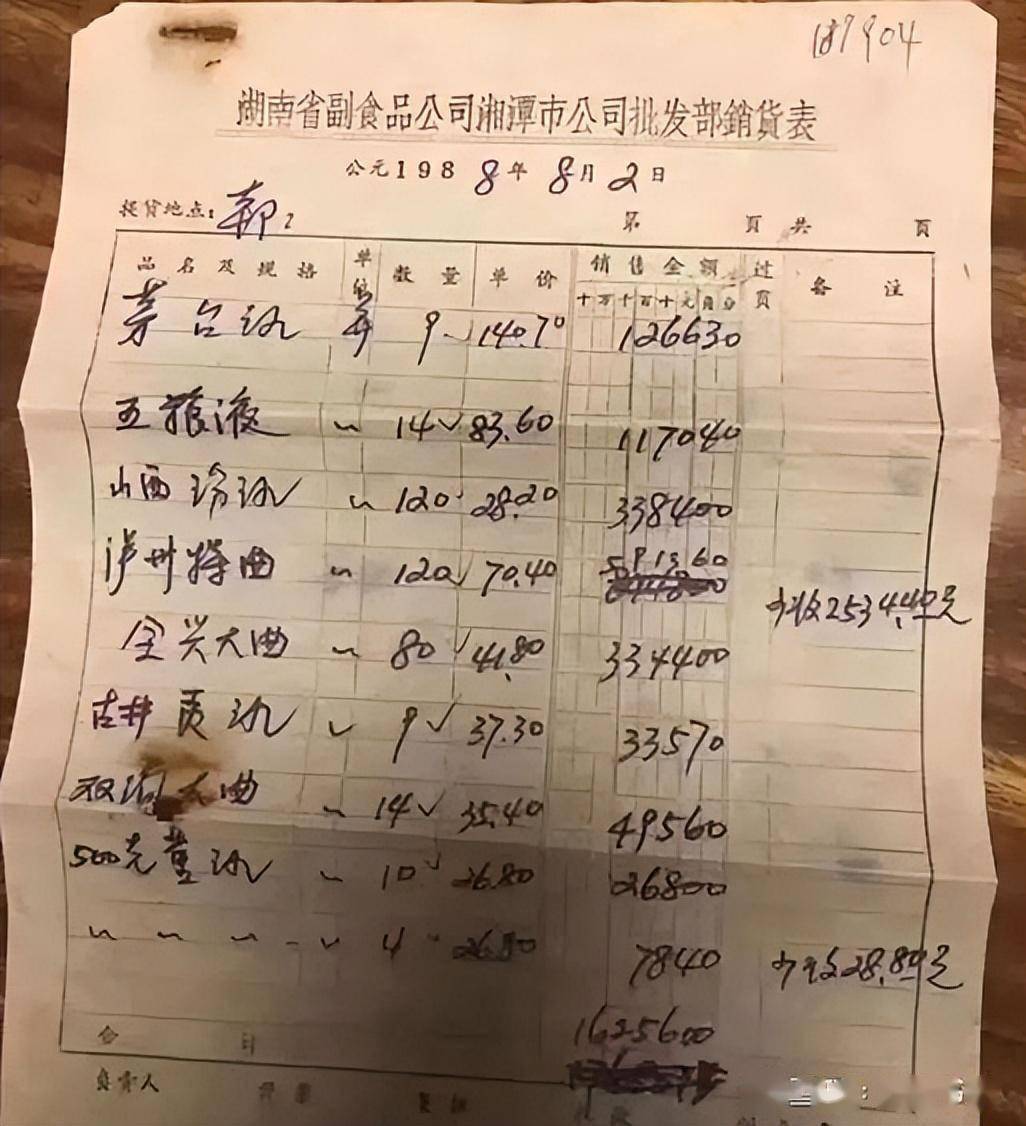 187904
湖南省副食品公司湘潭市公司批发部销货表
公元1988年8月2日
提货地点: 第 页共 页
品名及规格 单位 数量 单价 销售金额 过页 备注
十万千百十元角分
茅台酒 斤 9 140.70 126630
五粮液 〃 14 83.60 117040
山西汾酒 〃 120 28.20 338400
泸州特曲 〃 120 70.40 591360 少收2534.40元
全兴大曲 〃 80 41.80 334400
古井贡酒 〃 9 37.30 33570
双沟大曲 〃 14 35.40 49560
500克董酒 〃 10 26.80 26800
〃 〃 〃 - 〃 4 7840 少收28.80元
合计 1625600
负责人 开票 复核